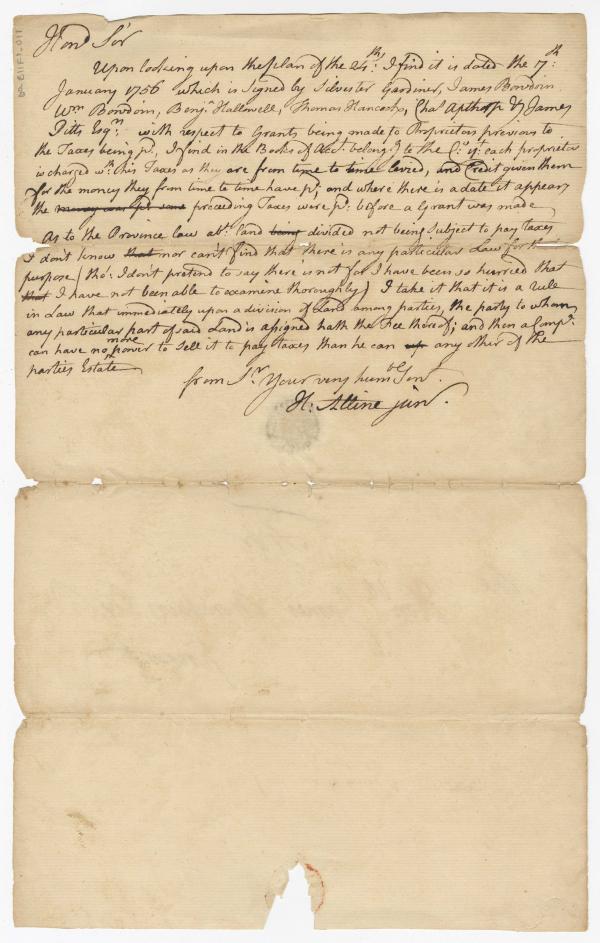 Hond Sir
Upon looking upon the plan of the 24th. I find it is dated the 17th
January 1756 which is signed by Silvester Gardiner, James Bowdoin
Wm Bowdoin, Benja Hallowell, Thomas Hancock, Chas Apthorp & James
Pitts Esqrs. with respect to Grants being made to Proprietors previous to
the Taxes being pd. I find in the Books of Acct. belongg to the Co. yt. each proprietor
is charged wth. his Taxes as they are from time to time levied, and Credit given them
for the money they from time to time have pd. and where there is a date it appears
the money was pd preceeding Taxes were pd. before a Grant was made
As to the Province law abt. land being divided not being Subject to pay taxes
I don't know that nor can't find that there is any particular Law for th
purpose (tho: I don't pretend to say there is not for I have been so hurried that
that I have not been able to examine thoroughly) I take it that it is a Rule
in Law that immediately upon a division of Land among parties, the party to whom
any particular part of said Land is assigned hath the Fee thereof; and then a Compy.
can have no more power to sell it to pay taxes than he can any other of the
parties Estate
from Sr. Your very humble Servt.
H: Alline junr.